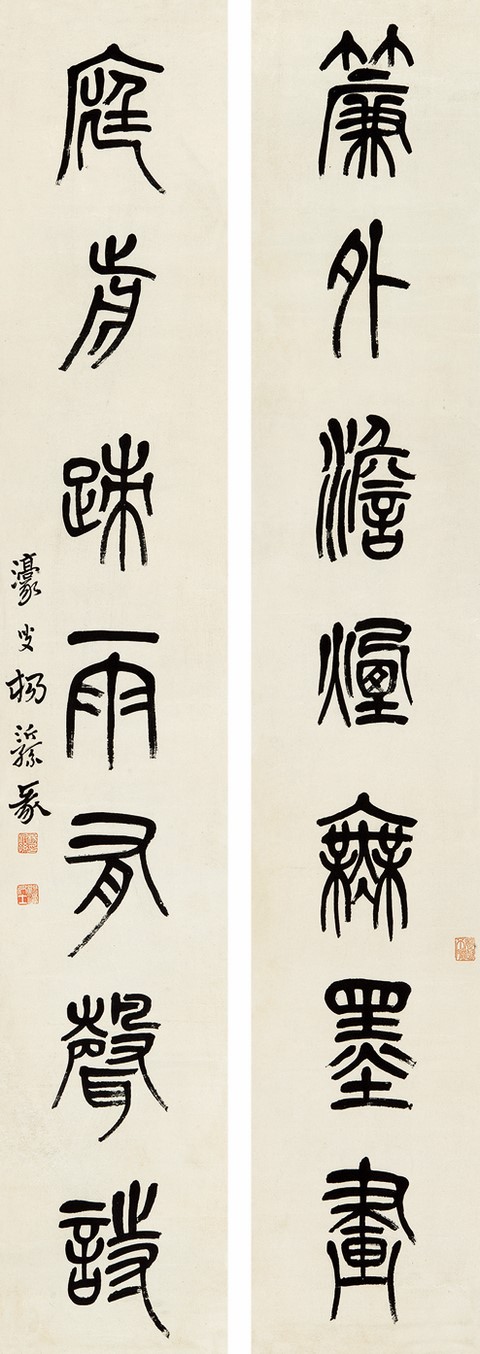 簾外澹煙無墨畫
庭前疎雨有聲詩
濠叟楊沂孫篆